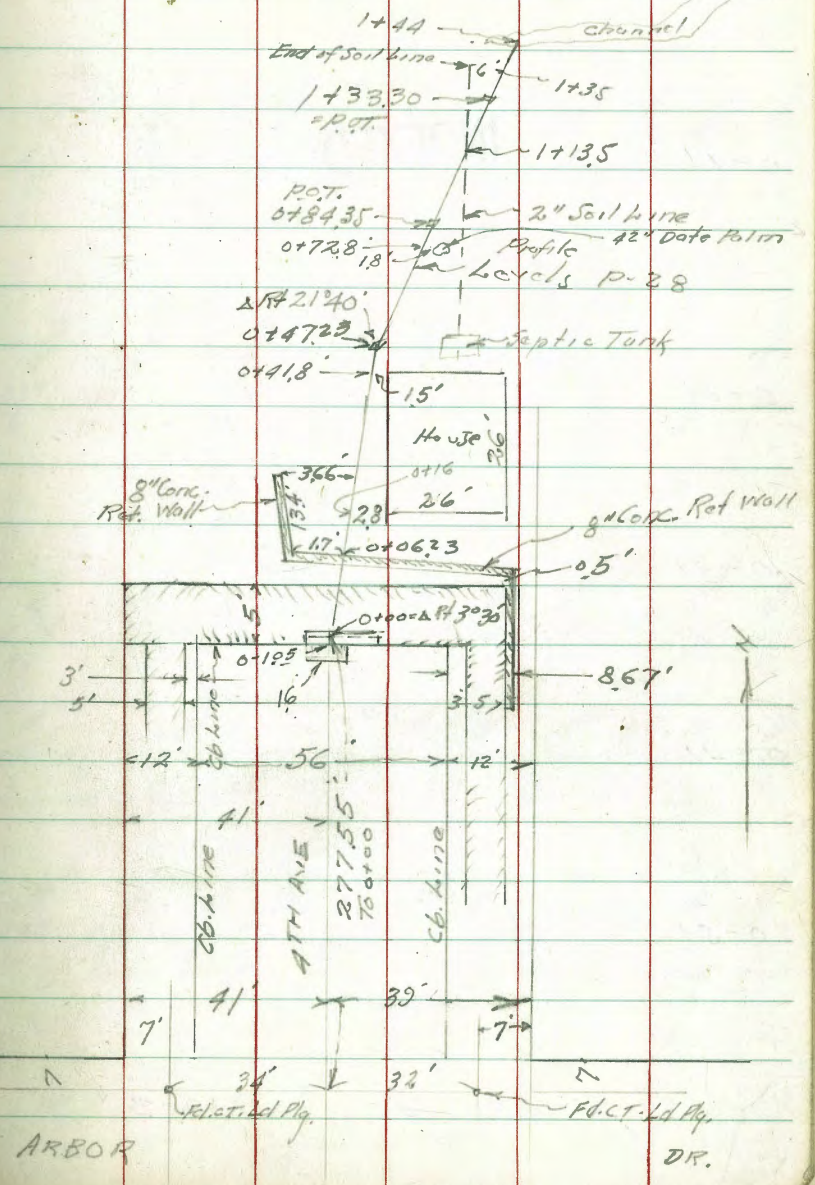 1+44
channel
End of Soil Line
6'
1+35
1+33.30
=P.O.T.
1+13.5
P.O.T.
0+84.35
2" Soil Line
0+72.8
42" Date Palm
1.8'
Profile
Levels P-28
Δ Rt 21°40'
0+47.23
Septic Tank
0+41.8
1.5'
House
26'
3.66'
0+16
8" Conc.
Ret. Wall
13.4'
2.8
26'
8" Conc. Ret Wall
1.7'
0+06.23
0.5'
5'
0+00=Δ Rt 3°30'
0-1.05
3'
8.67'
5'
1.6
3
5
Cb Line
12'
56
12'
41'
Cb. Line
4TH AVE
277.55'
To 0+00
Cb. Line
N
41'
39'
7'
7'
7
34'
32'
7'
Fd.CT.Ld Plg.
Fd.CT.Ld Plg.
ARBOR
DR.